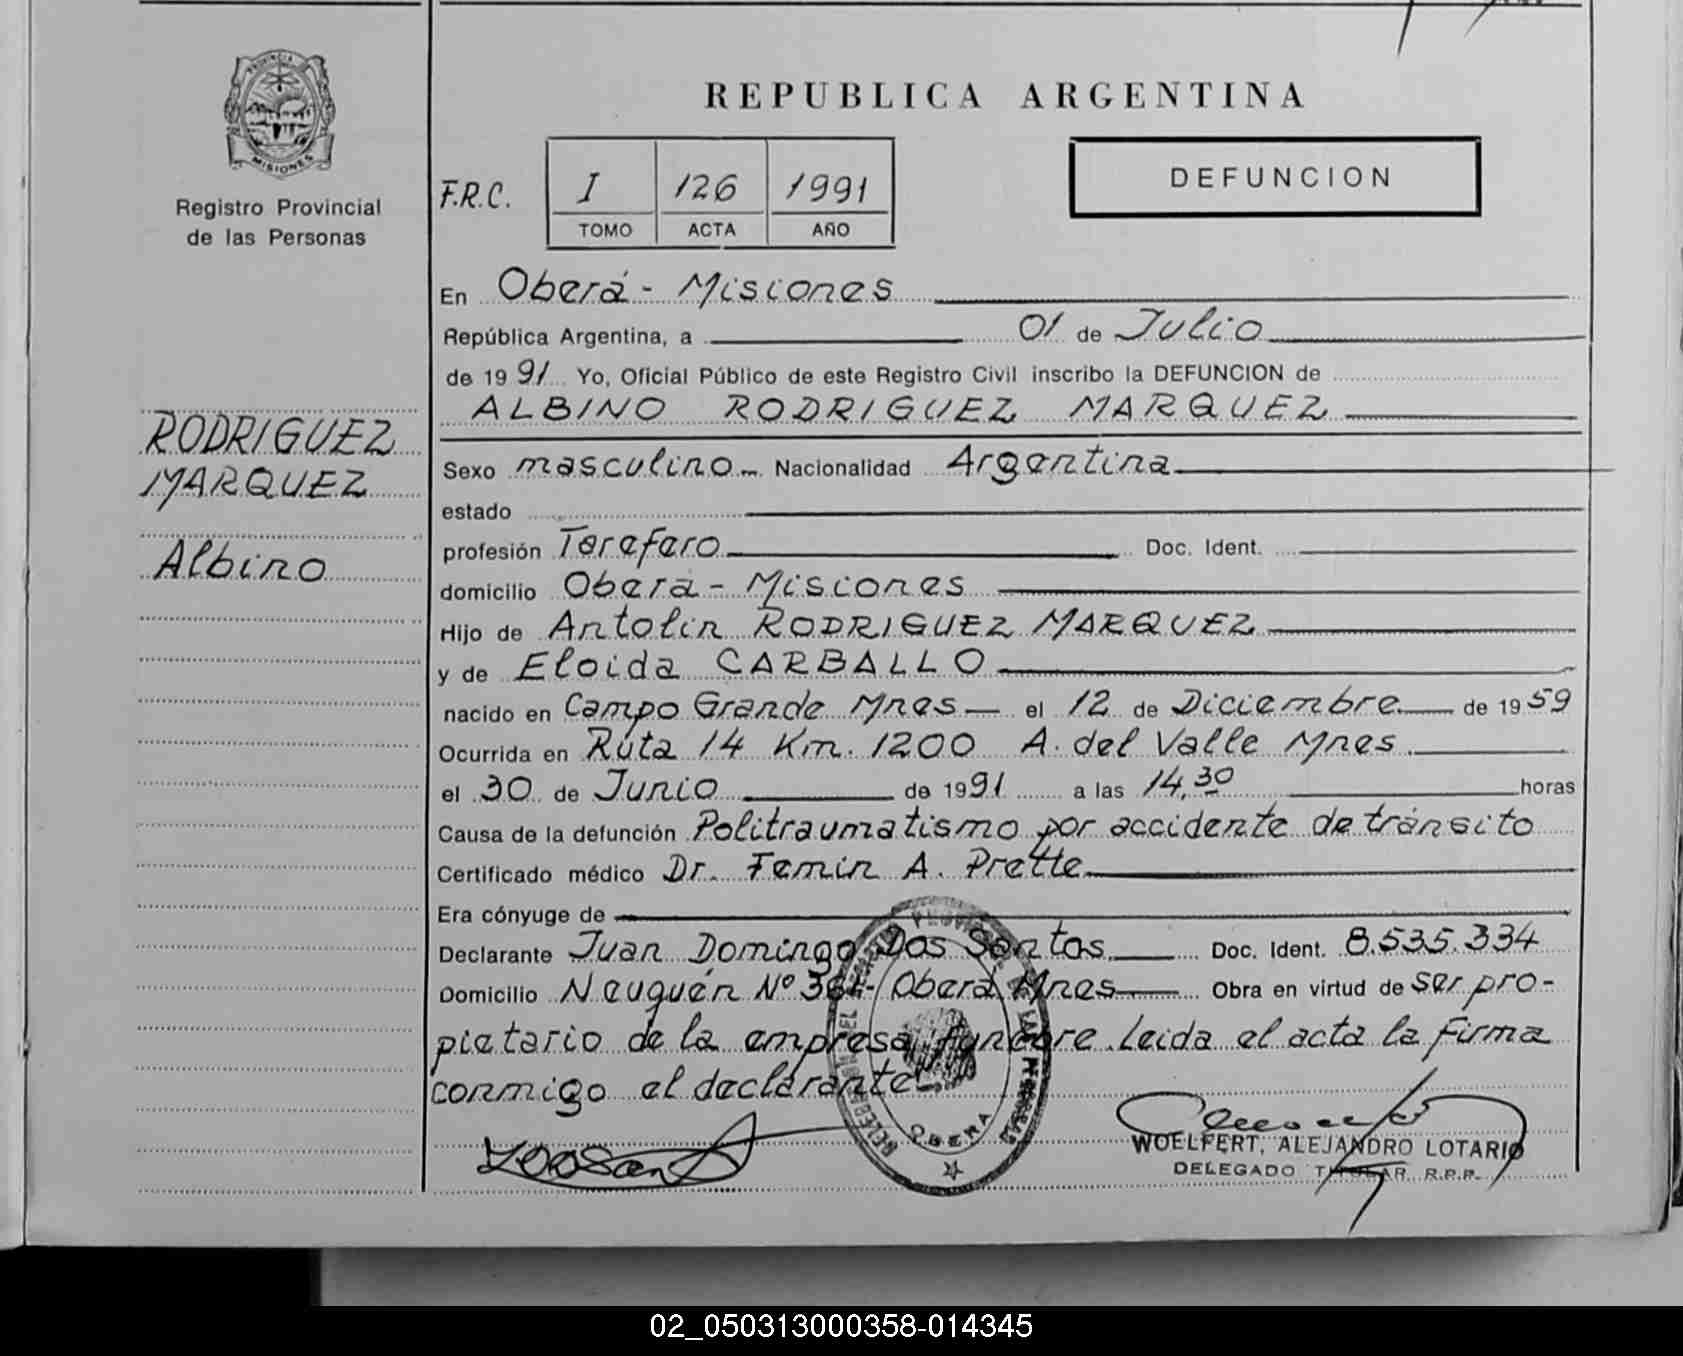 PROVINCIA
MISIONES
Registro Provincial
de las Personas
REPUBLICA ARGENTINA
F.R.C.
I 126 1991
TOMO ACTA AÑO
DEFUNCION
En Oberá - Misiones
República Argentina, a 01 de Julio
de 1991 Yo, Oficial Público de este Registro Civil inscribo la DEFUNCION de
ALBINO RODRIGUEZ MARQUEZ
RODRIGUEZ
MARQUEZ
Albino
Sexo masculino Nacionalidad Argentina
estado
profesión Tarefero Doc. Ident.
domicilio Oberá - Misiones
Hijo de Antolin RODRIGUEZ MARQUEZ
y de Eloida CARBALLO
nacido en Campo Grande Mnes el 12 de Diciembre de 1959
Ocurrida en Ruta 14 Km. 1200 A. del Valle Mnes
el 30 de Junio de 1991 a las 14,30 horas
Causa de la defunción Politraumatismo por accidente de tránsito
Certificado médico Dr. Femin A. Prette
Era cónyuge de
Declarante Juan Domingo Dos Santos Doc. Ident. 8.535.334
Domicilio Neuquén Nº - Oberá Mnes Obra en virtud de ser pro-
pietario de la empresa fúnebre. Leida el acta la firma
conmigo el declarante
OBERA
WOELFERT, ALEJANDRO LOTARIO
DELEGADO TITULAR R.P.P.
02_050313000358-014345